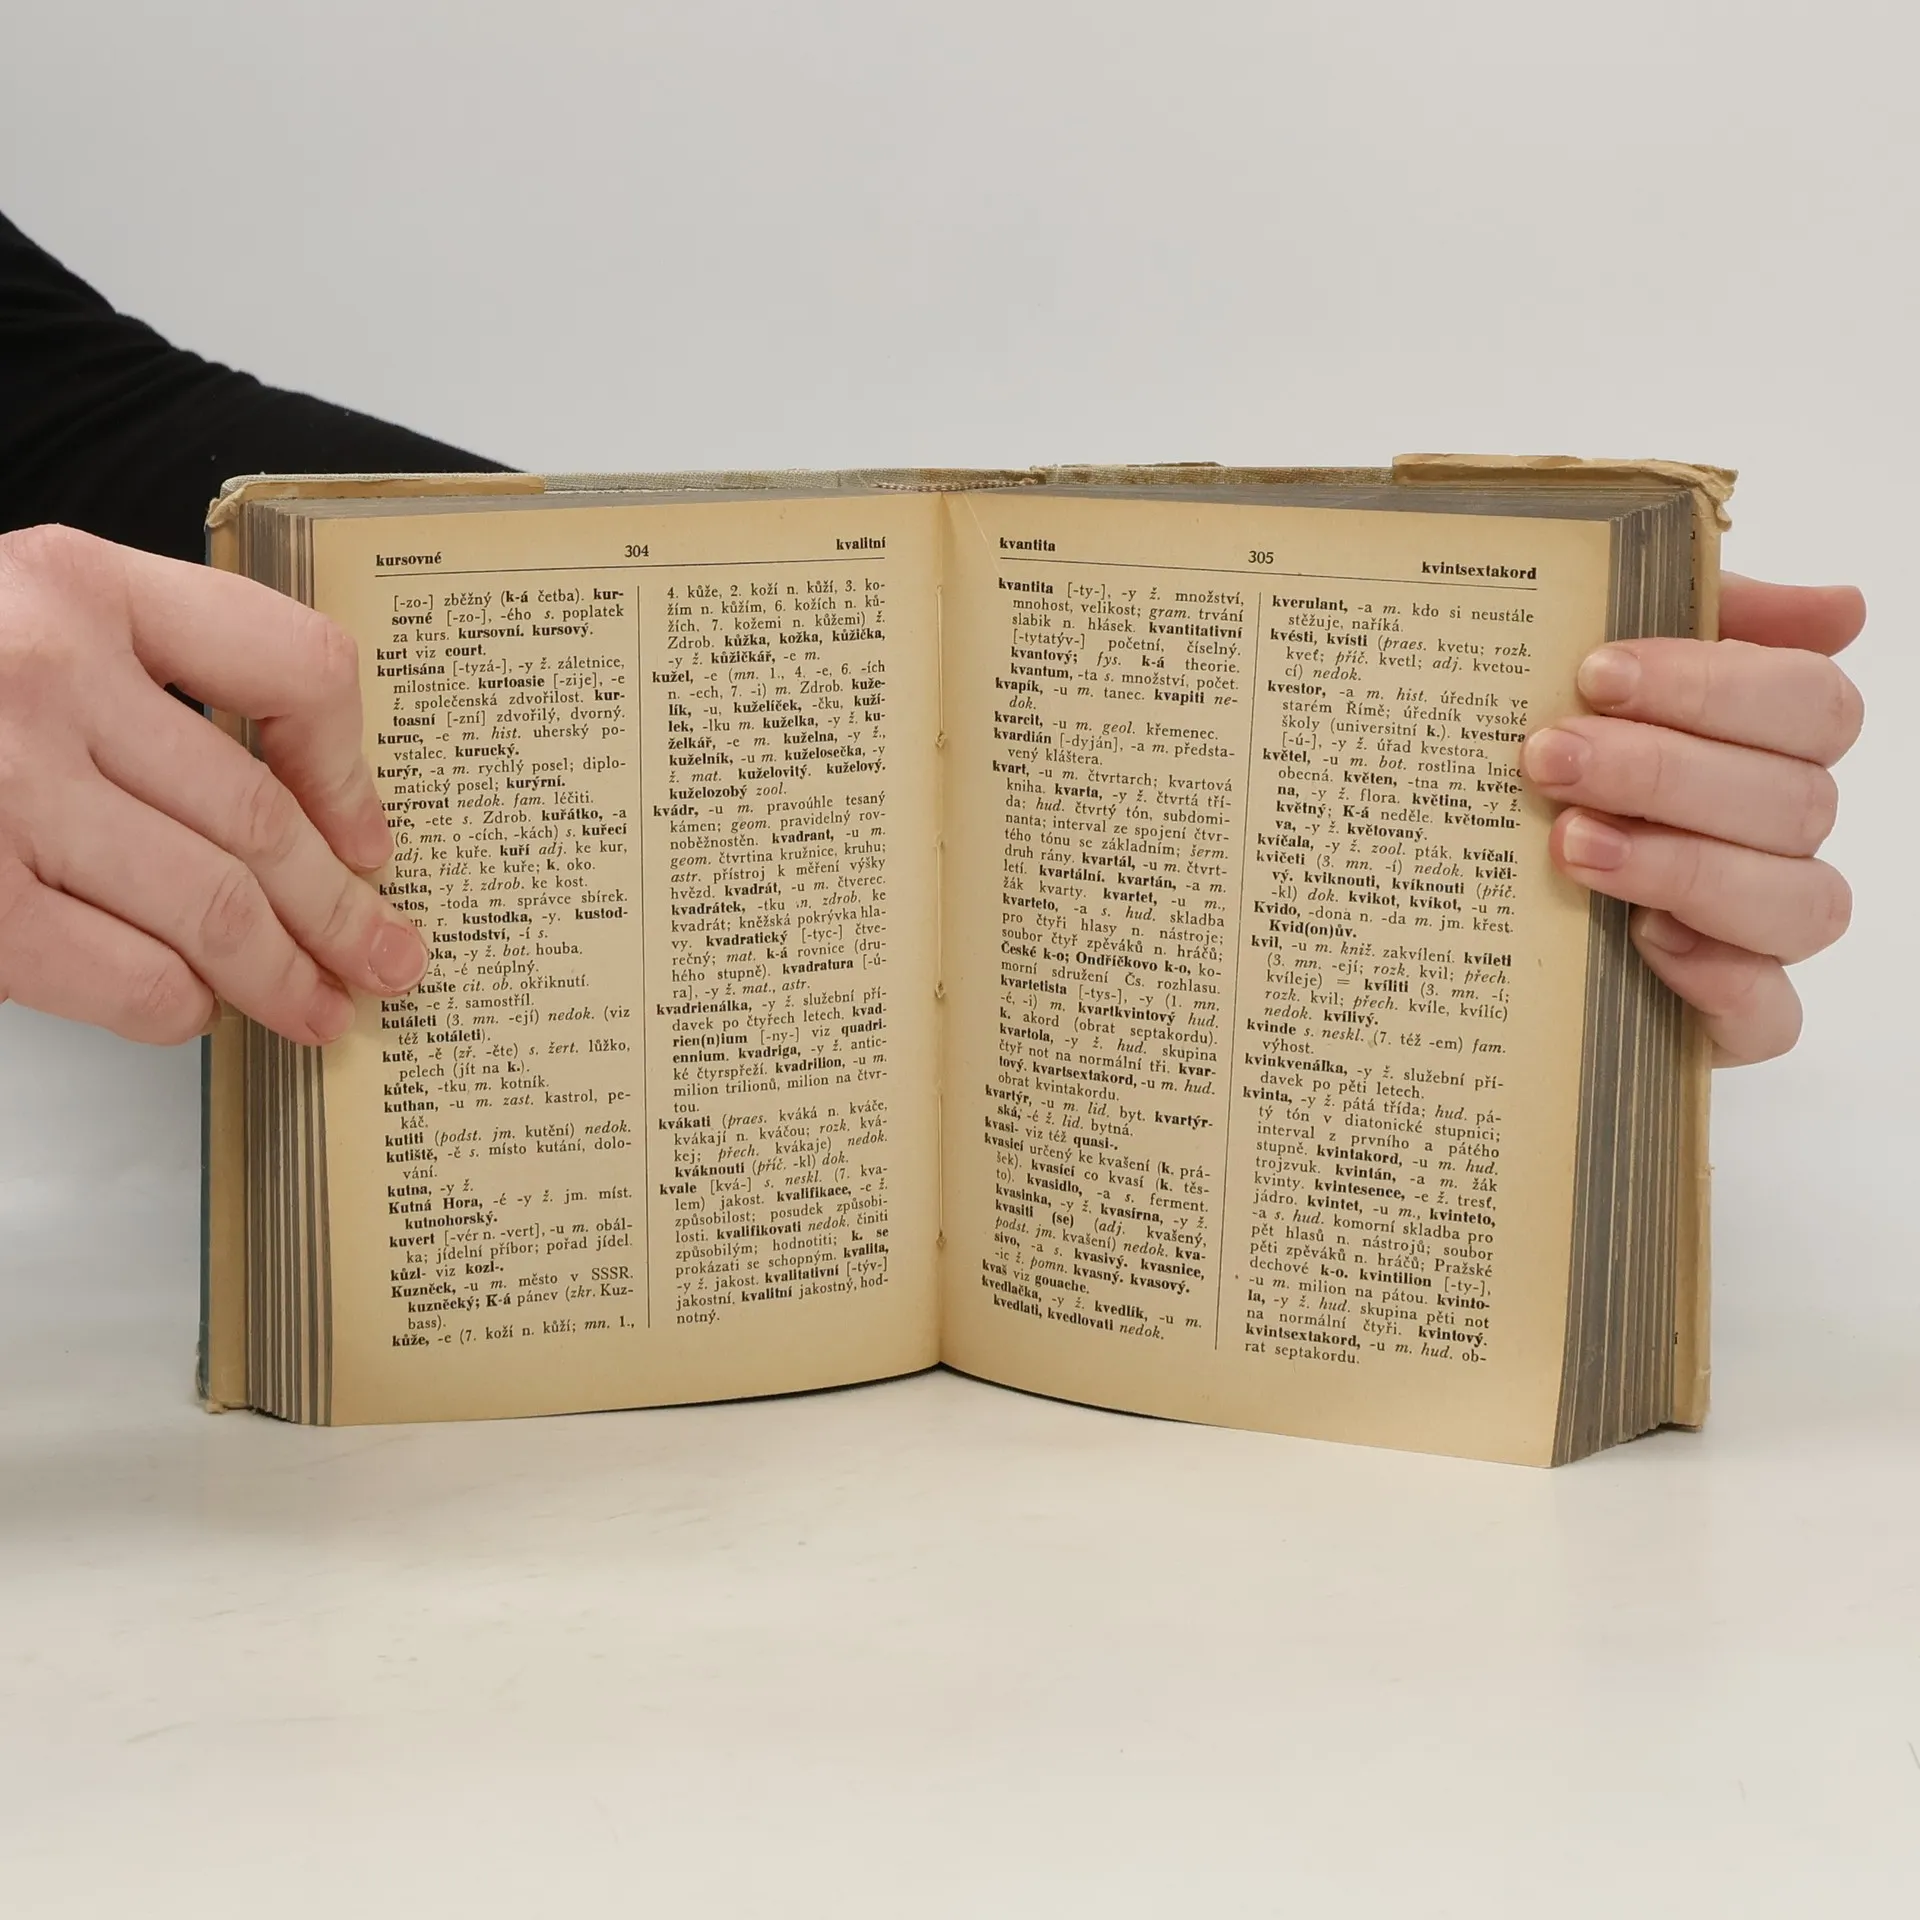 kursovné 304 kvalitní
[-zo-] zběžný (k-á četba). kur-
sovné [-zo-], -ého s. poplatek
za kurs. kursovní. kursový.
kurt viz court.
kurtisána [-tyzá-], -y ž. záletnice,
milostnice. kurtoasie [-zije], -e
ž. společenská zdvořilost. kur-
toasní [-zní] zdvořilý, dvorný.
kuruc, -e m. hist. uherský po-
vstalec. kurucký.
kurýr, -a m. rychlý posel; diplo-
matický posel; kurýrní.
kurýrovat nedok. fam. léčiti.
-ete s. Zdrob. kuřátko, -a
(6. mn. o -cích, -kách) s. kuřecí
adj. ke kuře. kuří adj. ke kur,
kura, řidč. ke kuře; k. oko.
kůstka, -y ž. zdrob. ke kost.
-toda m. správce sbírek.
r. kustodka, -y. kustod-
kustodství, -í s.
-y ž. bot. houba.
-á, -é neúplný.
kušte cit. ob. okřiknutí.
kuše, -e ž. samostříl.
kutáleti (3. mn. -ejí) nedok. (viz
též kotáleti).
kutě, -ě (zř. -ěte) s. žert. lůžko,
pelech (jít na k.).
kůtek, -tku m. kotník.
kuthan, -u m. zast. kastrol, pe-
káč.
kutiti (podst. jm. kutění) nedok.
kutiště, -ě s. místo kutání, dolo-
vání.
kutna, -y ž.
Kutná Hora, -é -y ž. jm. míst.
kutnohorský.
kuvert [-vér n. -vert], -u m. obál-
ka; jídelní příbor; pořad jídel.
kůzl- viz kozl-.
Kuzněck, -u m. město v SSSR.
kuzněcký; K-á pánev (zkr. Kuz-
bass).
kůže, -e (7. koží n. kůží; mn. 1.,
4. kůže, 2. koží n. kůží, 3. ko-
žím n. kůžím, 6. kožích n. ků-
žích, 7. kožemi n. kůžemi) ž.
Zdrob. kůžka, kožka, kůžička,
-y ž. kůžičkář, -e m.
kužel, -e (mn. 1., 4. -e, 6. -ích
n. -ech, 7. -i) m. Zdrob. kuže-
lík, -u, kuželíček, -čku, kuží-
lek, -lku m. kuželka, -y ž. ku-
želkář, -e m. kuželna, -y ž.,
kuželník, -u m. kuželosečka, -y
ž. mat. kuželovitý. kuželový.
kuželozobý zool.
kvádr, -u m. pravoúhle tesaný
kámen; geom. pravidelný rov-
noběžnostěn. kvadrant, -u m.
geom. čtvrtina kružnice, kruhu;
astr. přístroj k měření výšky
hvězd. kvadrát, -u m. čtverec.
kvadrátek, -tku m. zdrob. ke
kvadrát; kněžská pokrývka hla-
vy. kvadratický [-tyc-] čtve-
rečný; mat. k-á rovnice (dru-
hého stupně). kvadratura [-ú-
ra], -y ž. mat., astr.
kvadrienálka, -y ž. služební pří-
davek po čtyřech letech. kvad-
rien(n)ium [-ny-] viz quadri-
ennium. kvadriga, -y ž. antic-
ké čtyrspřeží. kvadrilion, -u m.
milion trilionů, milion na čtvr-
tou.
kvákati (praes. kváká n. kváče,
kvákají n. kváčou; rozk. kvá-
kej; přech. kvákaje) nedok.
kváknouti (příč. -kl) dok.
kvale [kvá-] s. neskl. (7. kva-
lem) jakost. kvalifikace, -e ž.
způsobilost; posudek způsobi-
losti. kvalifikovati nedok. činiti
způsobilým; hodnotiti; k. se
prokázati se schopným. kvalita,
-y ž. jakost. kvalitativní [-týv-]
jakostní. kvalitní jakostný, hod-
notný.
kvantita 305 kvintsextakord
kvantita [-ty-], -y ž. množství,
mnohost, velikost; gram. trvání
slabik n. hlásek. kvantitativní
[-tytatýv-] početní, číselný.
kvantový; fys. k-á theorie.
kvantum, -ta s. množství, počet.
kvapík, -u m. tanec. kvapiti ne-
dok.
kvarcit, -u m. geol. křemenec.
kvardián [-dyján], -a m. představa-
vený kláštera.
kvart, -u m. čtvrtarch; kvartová
kniha. kvarta, -y ž. čtvrtá tří-
da; hud. čtvrtý tón, subdomi-
nanta; interval ze spojení čtvr-
tého tónu se základním; šerm.
druh rány. kvartál, -u m. čtvrt-
letí. kvartální. kvartán, -a m.
žák kvarty. kvartet, -u m.,
kvarteto, -a s. hud. skladba
pro čtyři hlasy n. nástroje;
soubor čtyř zpěváků n. hráčů;
České k-o; Ondříčkovo k-o, ko-
morní sdružení Čs. rozhlasu.
kvartetista [-tys-], -y (1. mn.
-é, -i) m. kvartkvintový hud.
k. akord (obrat septakordu).
kvartola, -y ž. hud. skupina
čtyř not na normální tři. kvar-
tový. kvartsextakord, -u m. hud.
obrat kvintakordu.
kvartýr, -u m. lid. byt. kvartýr-
ská, -é ž. lid. bytná.
kvasi- viz též quasi-.
kvasicí určený ke kvašení (k. prá-
šek). kvasící co kvasí (k. těs-
to). kvasidlo, -a s. ferment.
kvasinka, -y ž. kvasírna, -y ž.
kvasiti (se) (adj. kvašený,
podst. jm. kvašení) nedok. kva-
sivo, -a s. kvasivý. kvasnice,
-ic ž. pomn. kvasný. kvasový.
kvaš viz gouache.
kvedlačka, -y ž. kvedlík, -u m.
kvedlati, kvedlovati nedok.
kverulant, -a m. kdo si neustále
stěžuje, naříká.
kvésti, kvísti (praes. kvetu; rozk.
kveť; příč. kvetl; adj. kvetou-
cí) nedok.
kvestor, -a m. hist. úředník ve
starém Římě; úředník vysoké
školy (universitní k.). kvestura
[-ú-], -y ž. úřad kvestora.
květel, -u m. bot. rostlina lnice
obecná. květen, -tna m. květe-
na, -y ž. flora. květina, -y ž.
květný; K-á neděle. květomlu-
va, -y ž. květovaný.
kvíčala, -y ž. zool. pták. kvíčalí.
kvičeti (3. mn. -í) nedok. kviči-
vý. kviknouti, kvíknouti (příč.
-kl) dok. kvikot, kvíkot, -u m.
Kvido, -dona n. -da m. jm. křest.
Kvid(on)ův.
kvil, -u m. kniž. zakvílení. kvíleti
(3. mn. -ejí; rozk. kvil; přech.
kvíleje) = kvíliti (3. mn. -í;
rozk. kvil; přech. kvíle, kvílíc)
nedok. kvílivý.
kvinde s. neskl. (7. též -em) fam.
výhost.
kvinkvenálka, -y ž. služební pří-
davek po pěti letech.
kvinta, -y ž. pátá třída; hud. pá-
tý tón v diatonické stupnici;
interval z prvního a pátého
stupně. kvintakord, -u m. hud.
trojzvuk. kvintán, -a m. žák
kvinty. kvintesence, -e ž. tresť,
jádro. kvintet, -u m., kvinteto,
-a s. hud. komorní skladba pro
pět hlasů n. nástrojů; soubor
pěti zpěváků n. hráčů; Pražské
dechové k-o. kvintilion [-ty-],
-u m. milion na pátou. kvinto-
la, -y ž. hud. skupina pěti not
na normální čtyři. kvintový.
kvintsextakord, -u m. hud. ob-
rat septakordu.